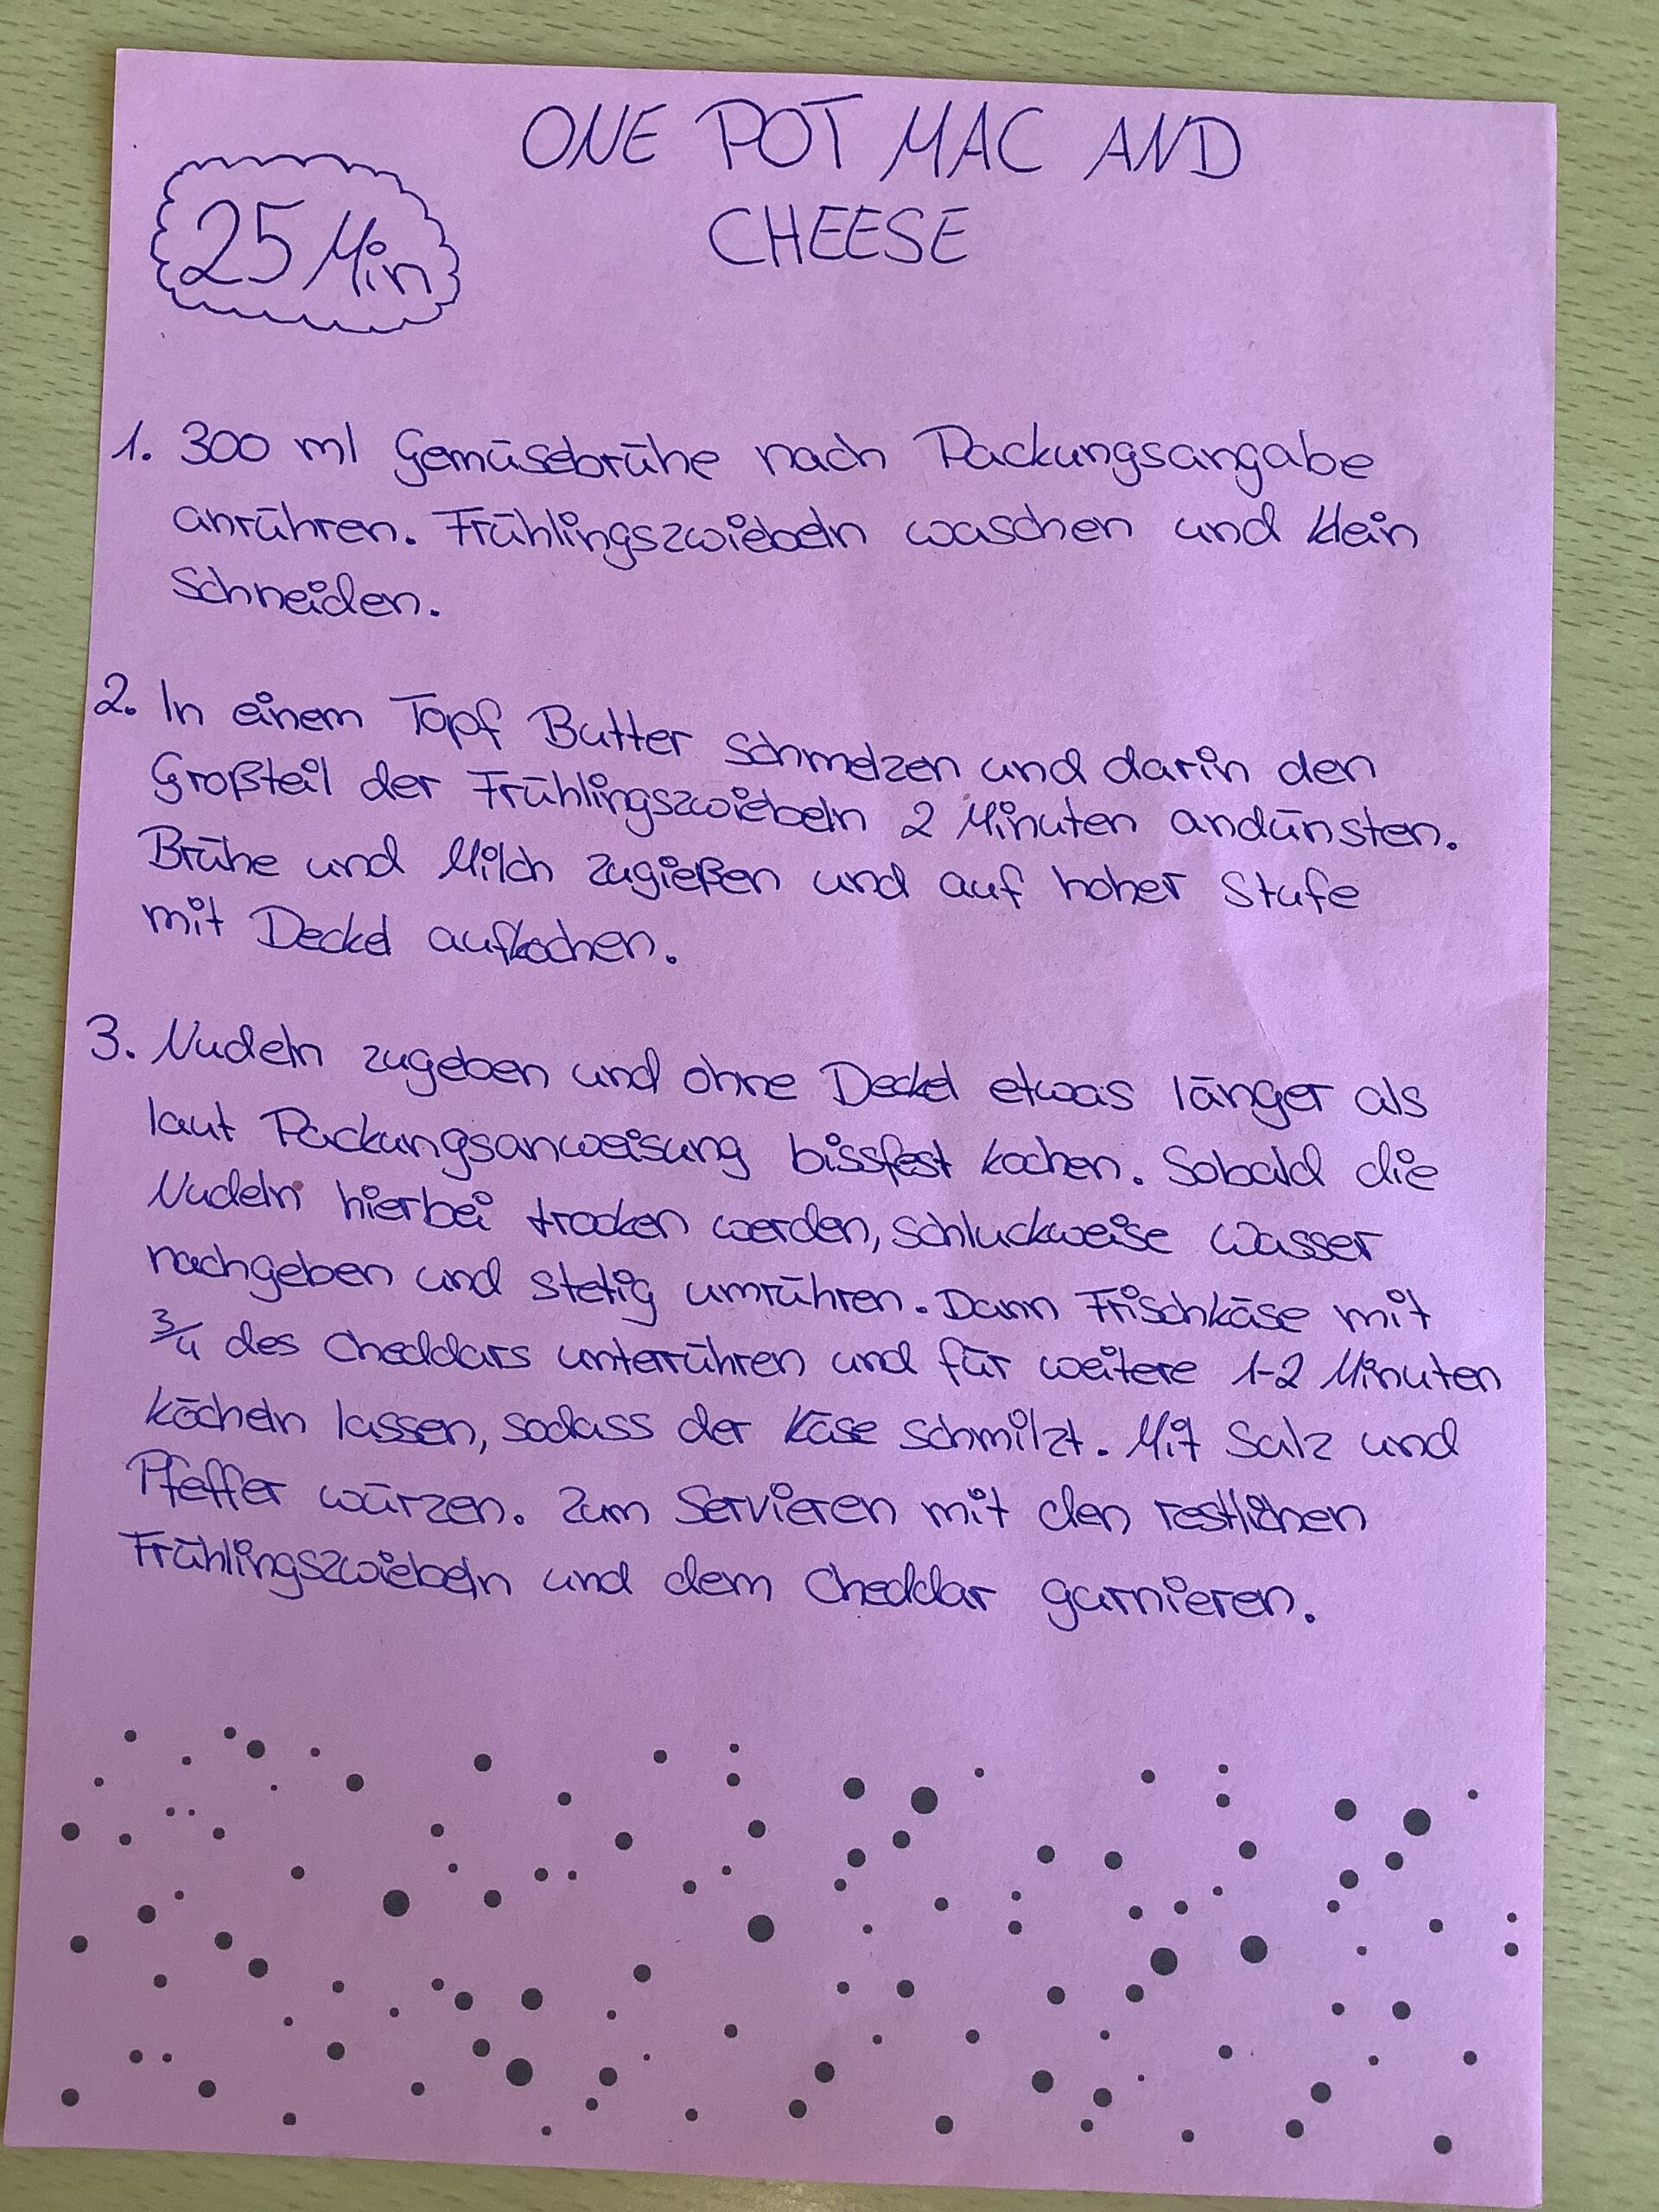 ONE POT MAC AND
CHEESE
25 Min
1. 300 ml Gemüsebrühe nach Packungsangabe
anrühren. Frühlingszwiebeln waschen und klein
schneiden.
2. In einem Topf Butter schmelzen und darin den
Großteil der Frühlingszwiebeln 2 Minuten andünsten.
Brühe und Milch zugießen und auf hoher Stufe
mit Deckel aufkochen.
3. Nudeln zugeben und ohne Deckel etwas länger als
laut Packungsanweisung bissfest kochen. Sobald die
Nudeln hierbei trocken werden, schluckweise Wasser
nachgeben und stetig umrühren. Dann Frischkäse mit
3/4 des Cheddars unterrühren und für weitere 1-2 Minuten
köcheln lassen, sodass der Käse schmilzt. Mit Salz und
Pfeffer würzen. Zum Servieren mit den restlichen
Frühlingszwiebeln und dem Cheddar garnieren.